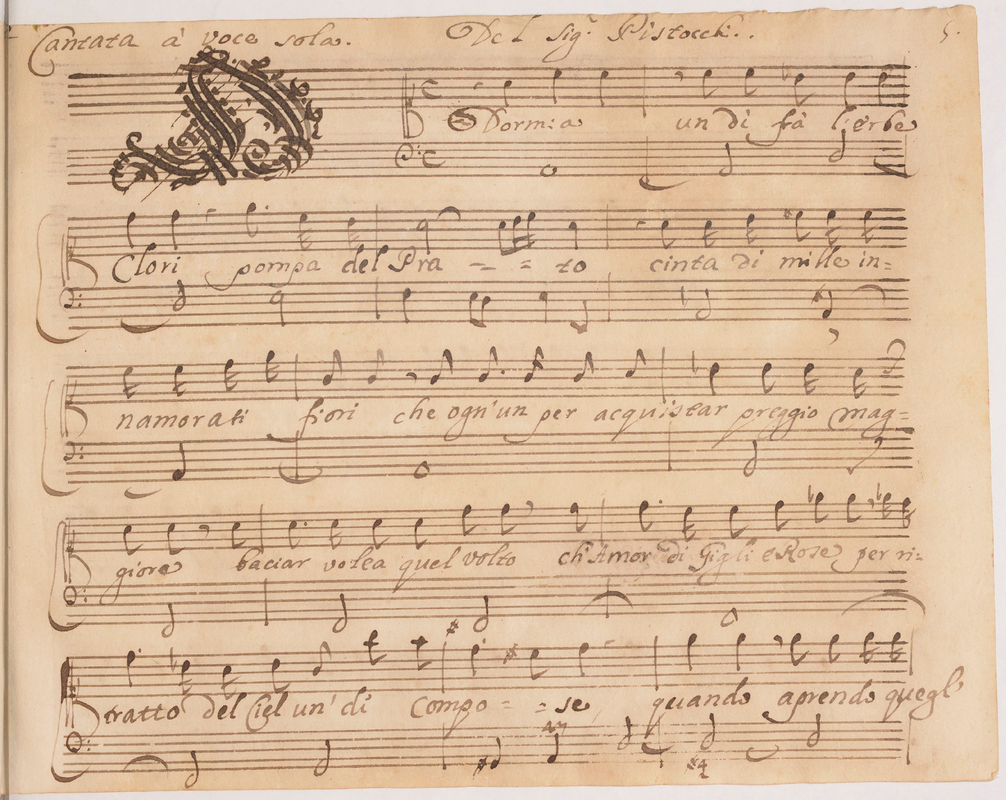 Cantata à voce sola. Del Sig.r Pistocch:. 5.
Dormia un di frà l'erbe
Clori pompa del Pra - - to cinta di mille in=
namorati fiori che ogn'un per acquistar preggio mag=
giore baciar volea quel volto ch'Amor di Gigli e Rose per ri=
tratto del Ciel un' di compo = = se quando aprendo quegl'